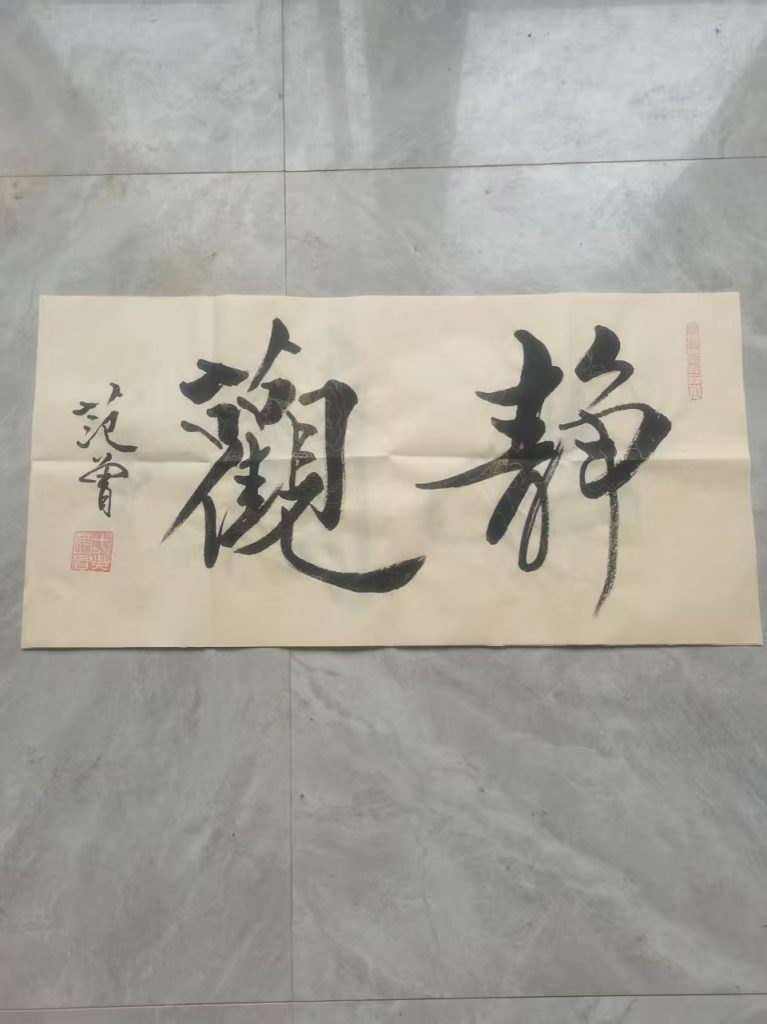 静觀
范曾